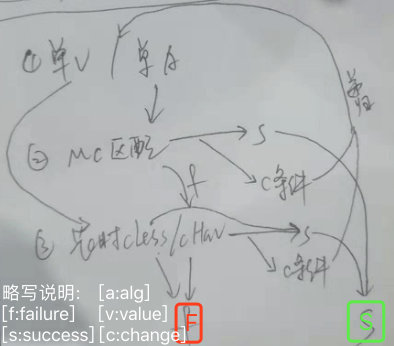 ① 单V / 单A
② MC匹配 → S
c条件
f
③ 临时cLess/cHav → S
c条件
略写说明: [a:alg]
[f:failure] [v:value] F S
[s:success] [c:change]